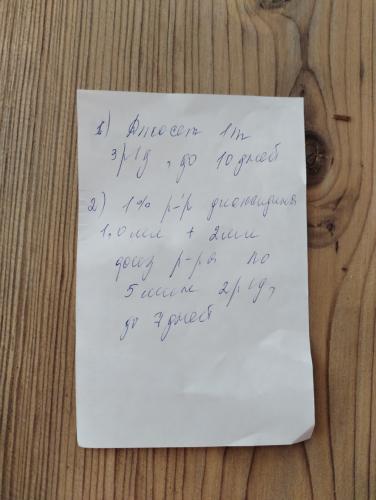 1) Аскосет 1т
3р/д, до 10 дней
2) 1% р-р диоксидина
1,0 мл + 2 мл
физ р-ра по
5 мин 2р/д,
до 7 дней